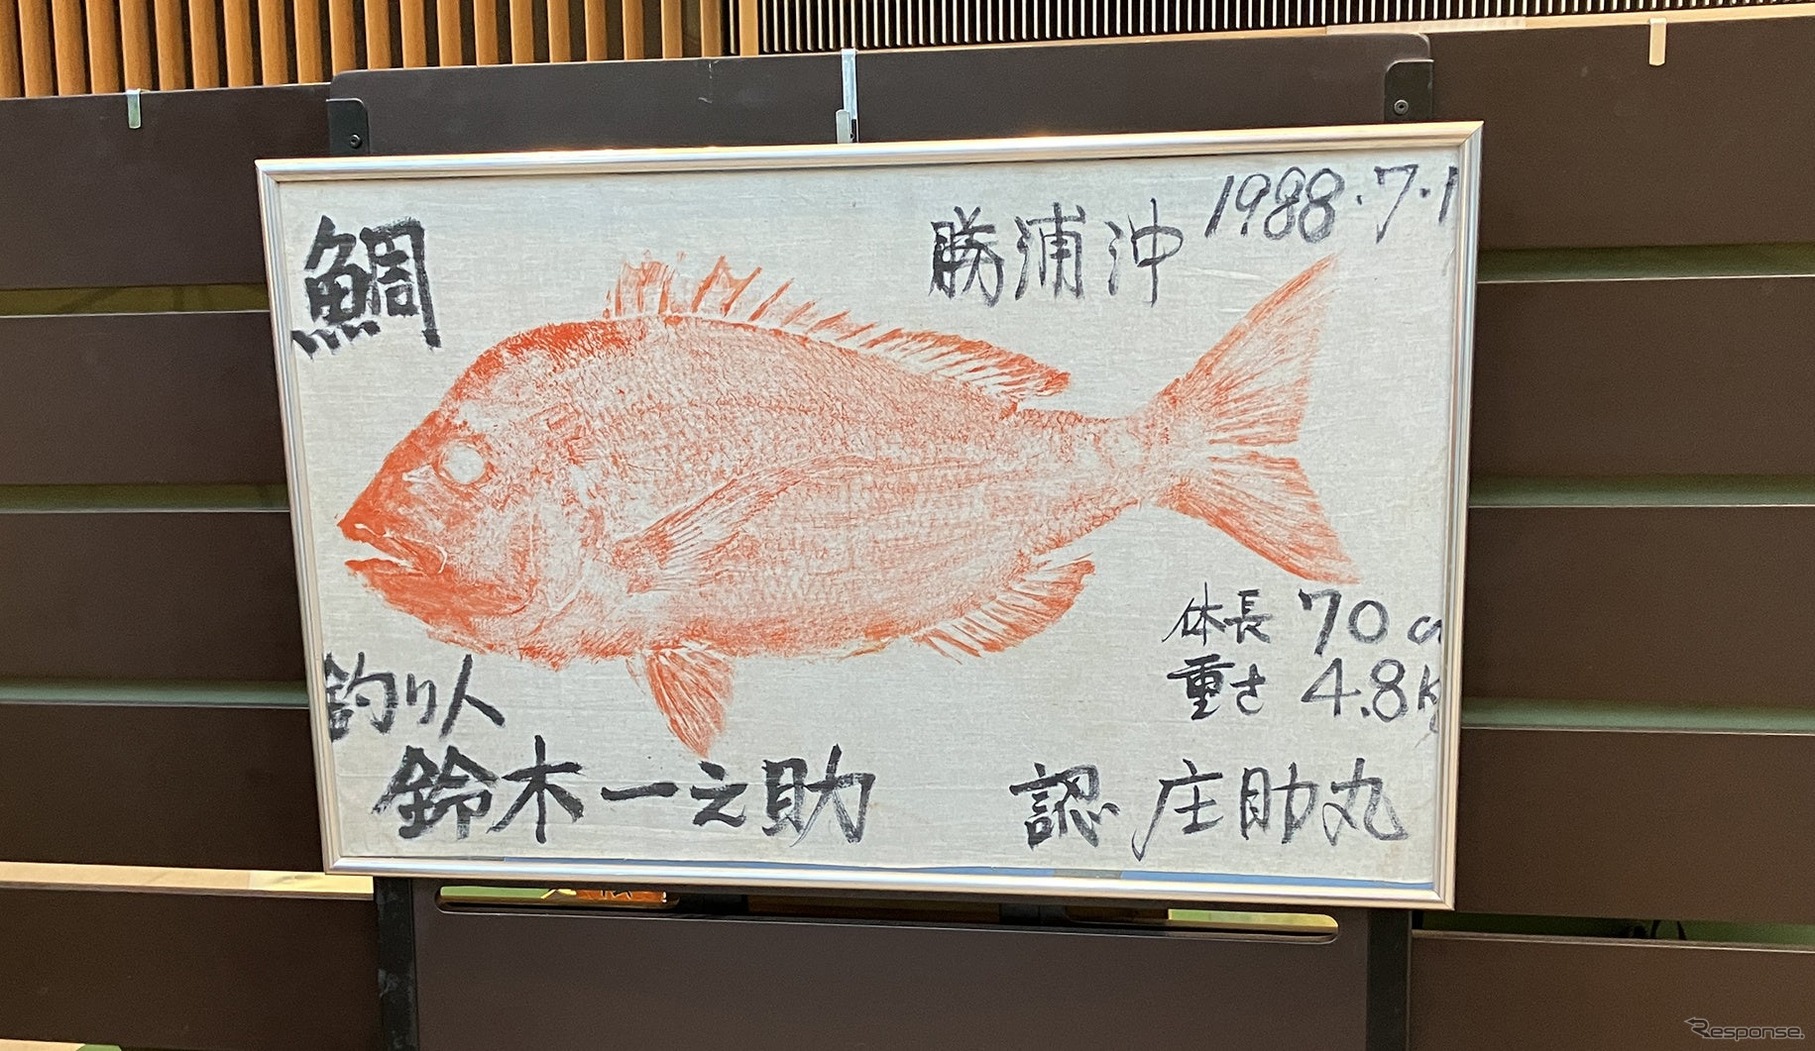 鯛
勝浦沖 1988.7.1
体長 70 c
重さ 4.8k
釣り人
鈴木一之助
認 庄助丸
Response.